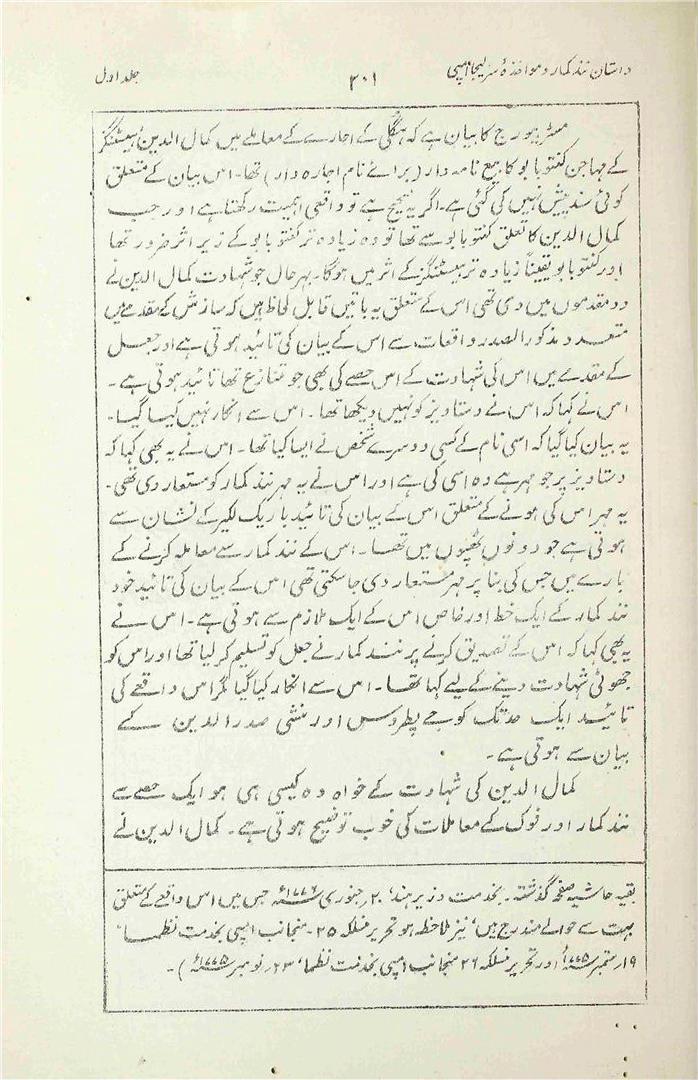 داستان نند کمار و مواخذۂ سر ایلیجا امپی
۲۰۱
جلد اول
مسٹر بیورج کا بیان ہے کہ ہگلی کے اجارے کے معاملے میں کمال الدین ہیسٹنگز
کے مہاجن کنتو بابو کا بیع نامہ دار (برائے نام اجارہ دار) تھا۔ اس بیان کے متعلق
کوئی سند پیش نہیں کی گئی ہے۔ اگر یہ صحیح ہے تو واقعی اہمیت رکھتا ہے اور جب
کمال الدین کا تعلق کنتو بابو سے تھا تو وہ زیادہ تر کنتو بابو کے زیر اثر ضرور تھا
اور کنتو بابو یقیناً زیادہ تر ہیسٹنگز کے اثر میں ہوگا۔ بہرحال جو شہادت کمال الدین نے
دو مقدموں میں دی تھی اس کے متعلق یہ باتیں قابل لحاظ ہیں کہ سازش کے مقدمے میں
متعدد مذکور الصدر واقعات سے اس کے بیان کی تائید ہوتی ہے اور جعل
کے مقدمے میں اس کی شہادت کے اس حصے کی بھی جو متنازع تھا تائید ہوتی ہے۔
اس نے کہا کہ اس نے دستاویز کو نہیں دیکھا تھا۔ اس سے انکار نہیں کیا گیا۔
یہ بیان کیا گیا کہ اسی نام کے کسی دوسرے شخص نے ایسا کیا تھا۔ اس نے یہ بھی کہا کہ
دستاویز پر جو مہر ہے وہ اسی کی ہے اور اس نے یہ مہر نند کمار کو مستعار دی تھی۔
یہ مہر اس کی ہونے کے متعلق اس کے بیان کی تائید باریک لکیر کے نشان سے
ہوتی ہے جو دونوں ٹھپوں میں تھا۔ اس کے نند کمار سے معاملہ کرنے کے
بارے میں جس کی بنا پر مہر مستعار دی جا سکتی تھی اس کے بیان کی تائید خود
نند کمار کے ایک خط اور خاص اس کے ایک ملازم سے ہوتی ہے۔ اس نے
یہ بھی کہا کہ اس کے تصدیق کرنے پر نند کمار نے جعل کو تسلیم کر لیا تھا اور اس کو
جھوٹی شہادت دینے کے لیے کہا تھا۔ اس سے انکار کیا گیا مگر اس واقعے کی
تائید ایک حد تک کوجے پطروس اور منشی صدر الدین کے
بیان سے ہوتی ہے۔
کمال الدین کی شہادت کے خواہ وہ کیسی ہی ہو ایک حصے سے
نند کمار اور فوک کے معاملات کی خوب توضیح ہوتی ہے۔ کمال الدین نے
بقیہ حاشیہ صفحہ گذشتہ۔ بخدمت وزیر ہند، ۲۰ جنوری ۱۷۷۶ء جس میں اس واقعے کے متعلق
بہت سے حوالے مندرج ہیں، نیز ملاحظہ ہو تحریر منسلکہ ۲۵۔ منجانب امپی بخدمت نظما،
۱۹ ستمبر ۱۷۷۵ء اور تحریر منسلکہ ۲۶ منجانب امپی بخدمت نظما، ۲۳ نومبر ۱۷۷۵ء)۔